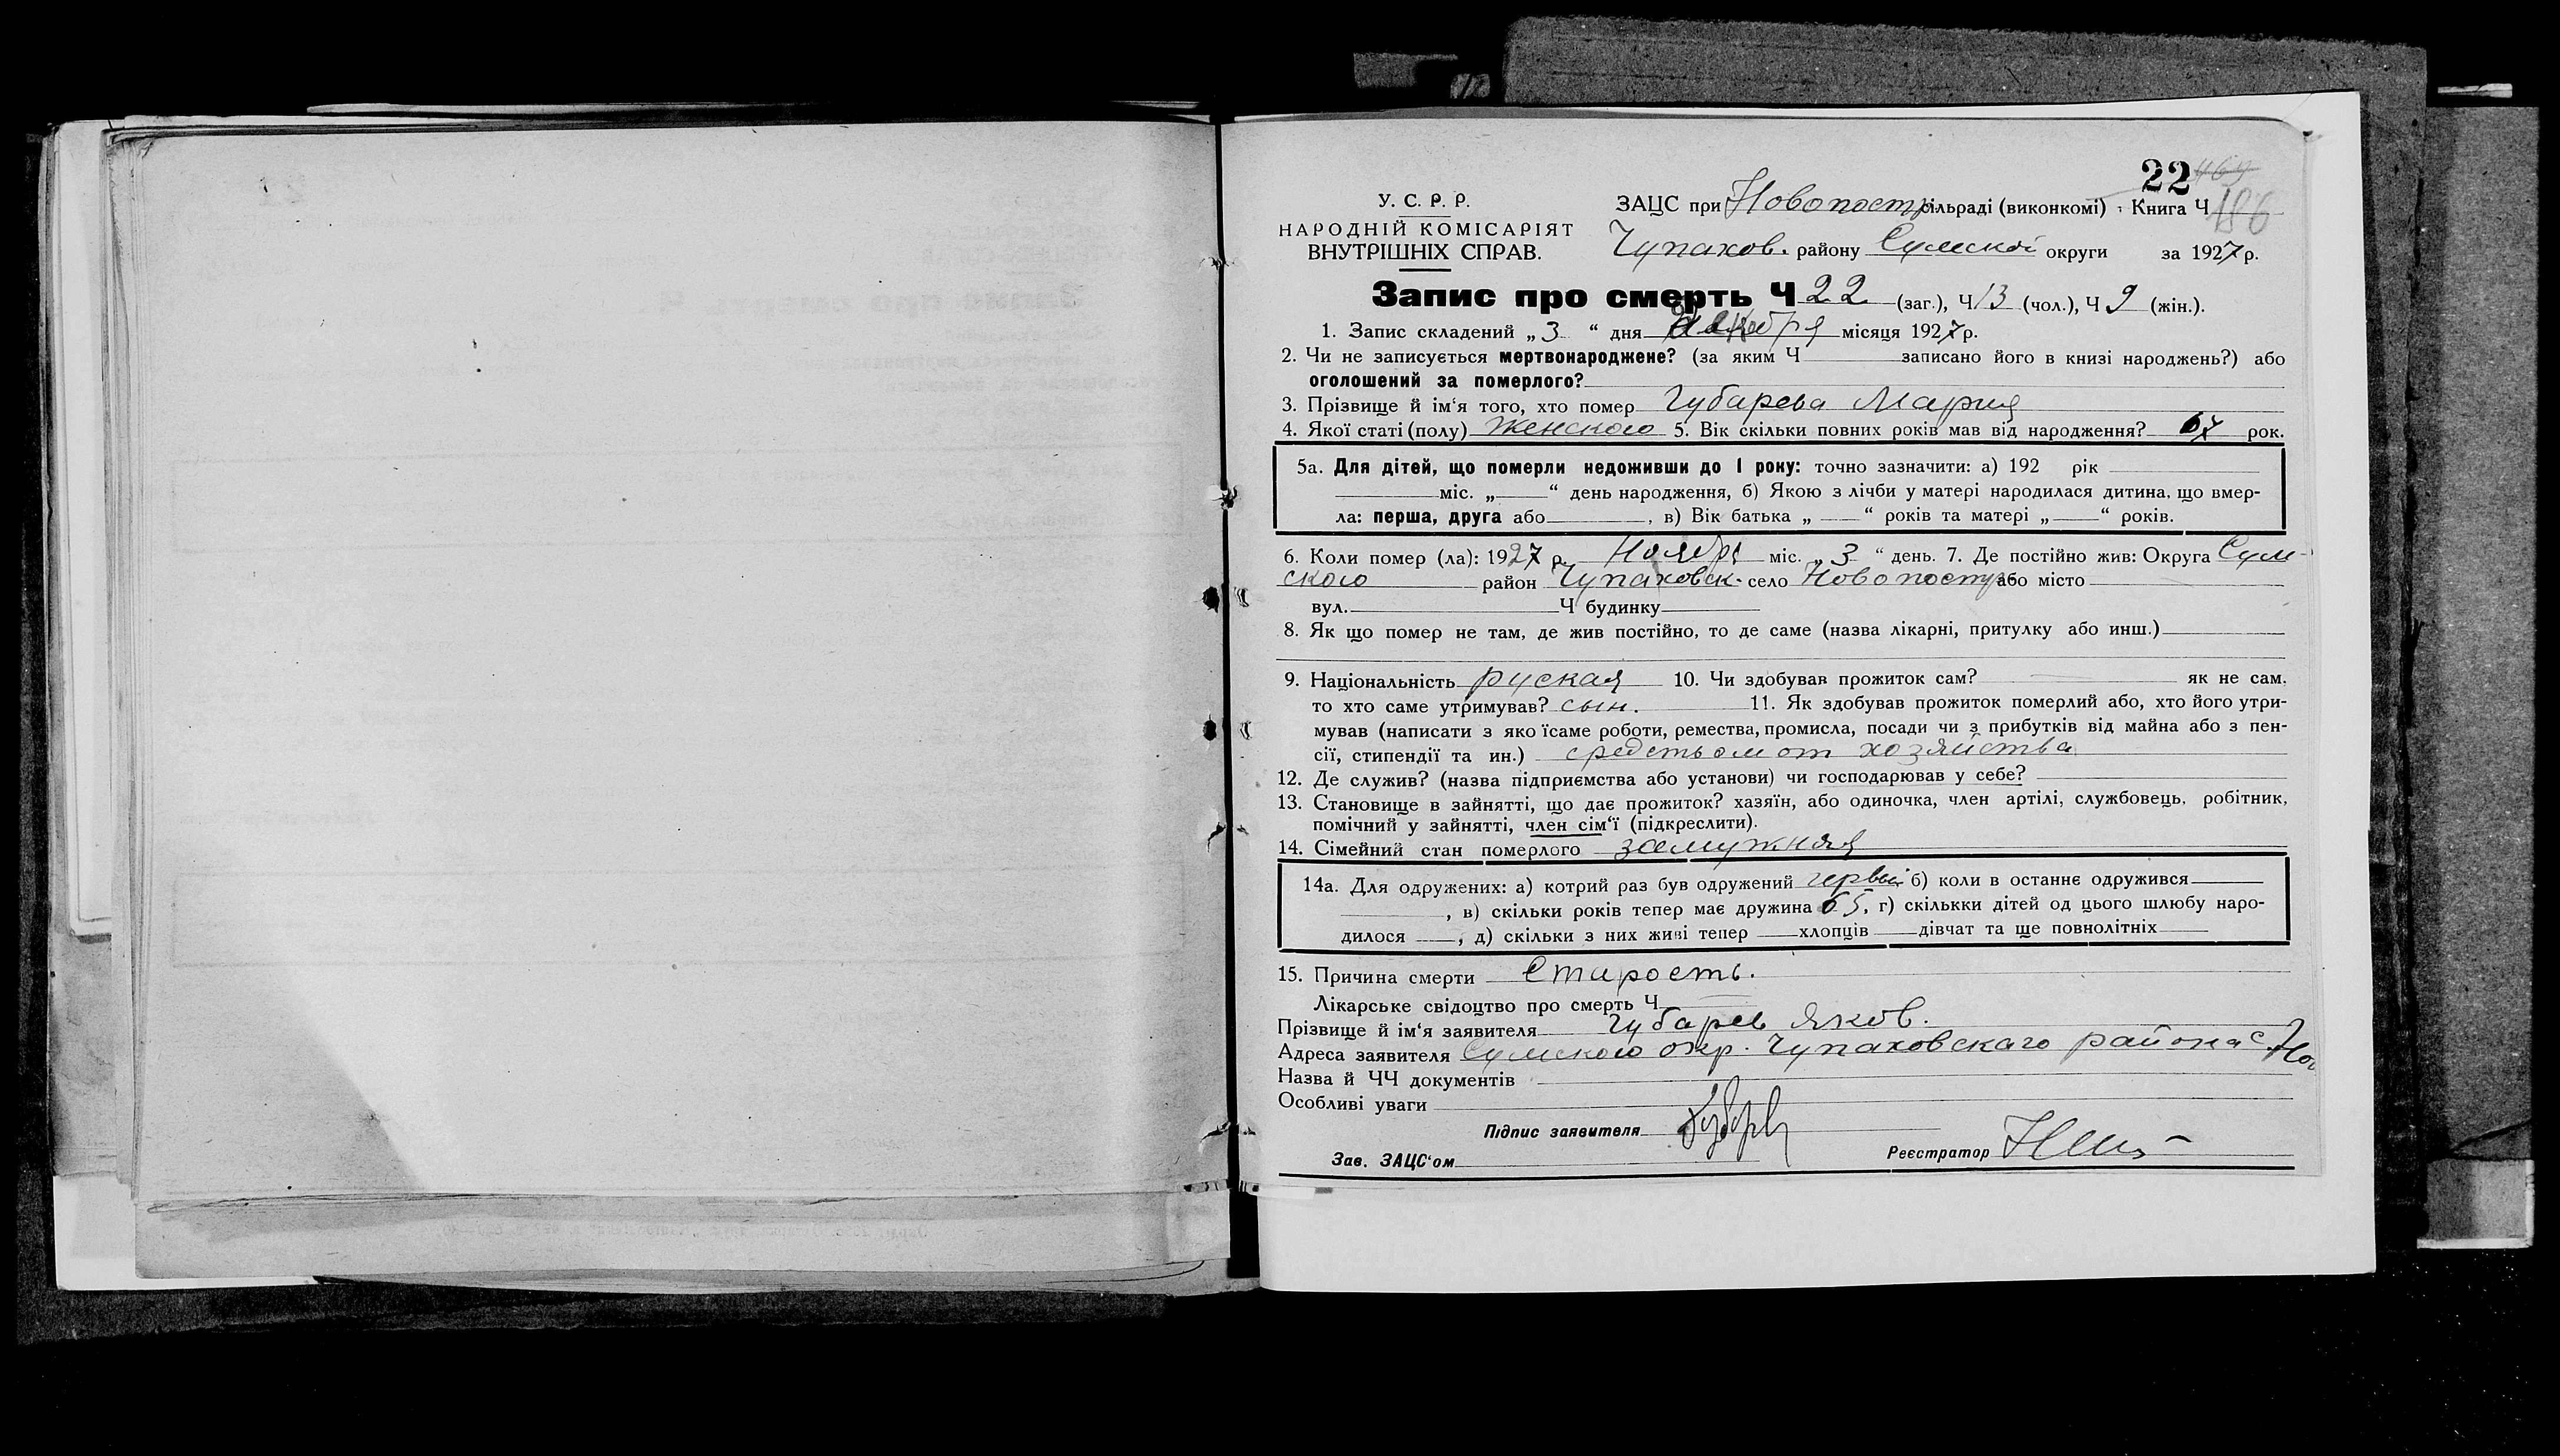 22 464
У. С. Р. Р. ЗАЦС при Новопостр сільраді (виконкомі) Книга Ч 186
НАРОДНІЙ КОМІСАРІЯТ
ВНУТРІШНІХ СПРАВ. Чупахов. району Сумской округи за 1927 р.
Запис про смерть Ч 22 (заг.), Ч 13 (чол.), Ч 9 (жін.).
1. Запис складений „ 3 “ дня декобря місяця 1927 р.
2. Чи не записується мертвонароджене? (за яким Ч записано його в книзі народжень?) або
оголошений за померлого?
3. Прізвище й ім‘я того, хто помер Губарева Мария
4. Якої статі (полу) Женского 5. Вік скільки повних років мав від народження? 67 рок.
5а. Для дітей, що померли недоживши до 1 року: точно зазначити: а) 192 рік
міс. „ “ день народження, б) Якою з лічби у матері народилася дитина, що вмер-
ла: перша, друга або , в) Вік батька „ “ років та матері „ “ років.
6. Коли помер (ла): 1927 р. Ноября міс. „ 3 “ день. 7. Де постійно жив: Округа Сум-
ского район Чупаховск. село Новопостр або місто
вул. Ч будинку
8. Як що помер не там, де жив постійно, то де саме (назва лікарні, притулку або инш.)
9. Національність руская 10. Чи здобував прожиток сам? як не сам.
то хто саме утримував? сын. 11. Як здобував прожиток померлий або, хто його утри-
мував (написати з яко їсаме роботи, ремества, промисла, посади чи з прибутків від майна або з пен-
сії, стипендії та ин.) средствам от хозяйства
12. Де служив? (назва підприємства або установи) чи господарював у себе?
13. Становище в зайнятті, що дає прожиток? хазяїн, або одиночка, член артілі, службовець, робітник,
помічний у зайнятті, член сім‘ї (підкреслити).
14. Сімейний стан померлого замужняя
14а. Для одружених: а) котрий раз був одружений первый б) коли в останнє одружився
, в) скільки років тепер має дружина 65, г) скількки дітей од цього шлюбу наро-
дилося , д) скільки з них живі тепер хлопців дівчат та ще повнолітніх
15. Причина смерти Старость.
Лікарське свідоцтво про смерть Ч
Прізвище й ім‘я заявителя Губарев Яков.
Адреса заявителя Сумского окр. Чупаховскаго района с. Но
Назва й ЧЧ документів
Особливі уваги
Підпис заявителя Губарев
Зав. ЗАЦС‘ом Реєстратор